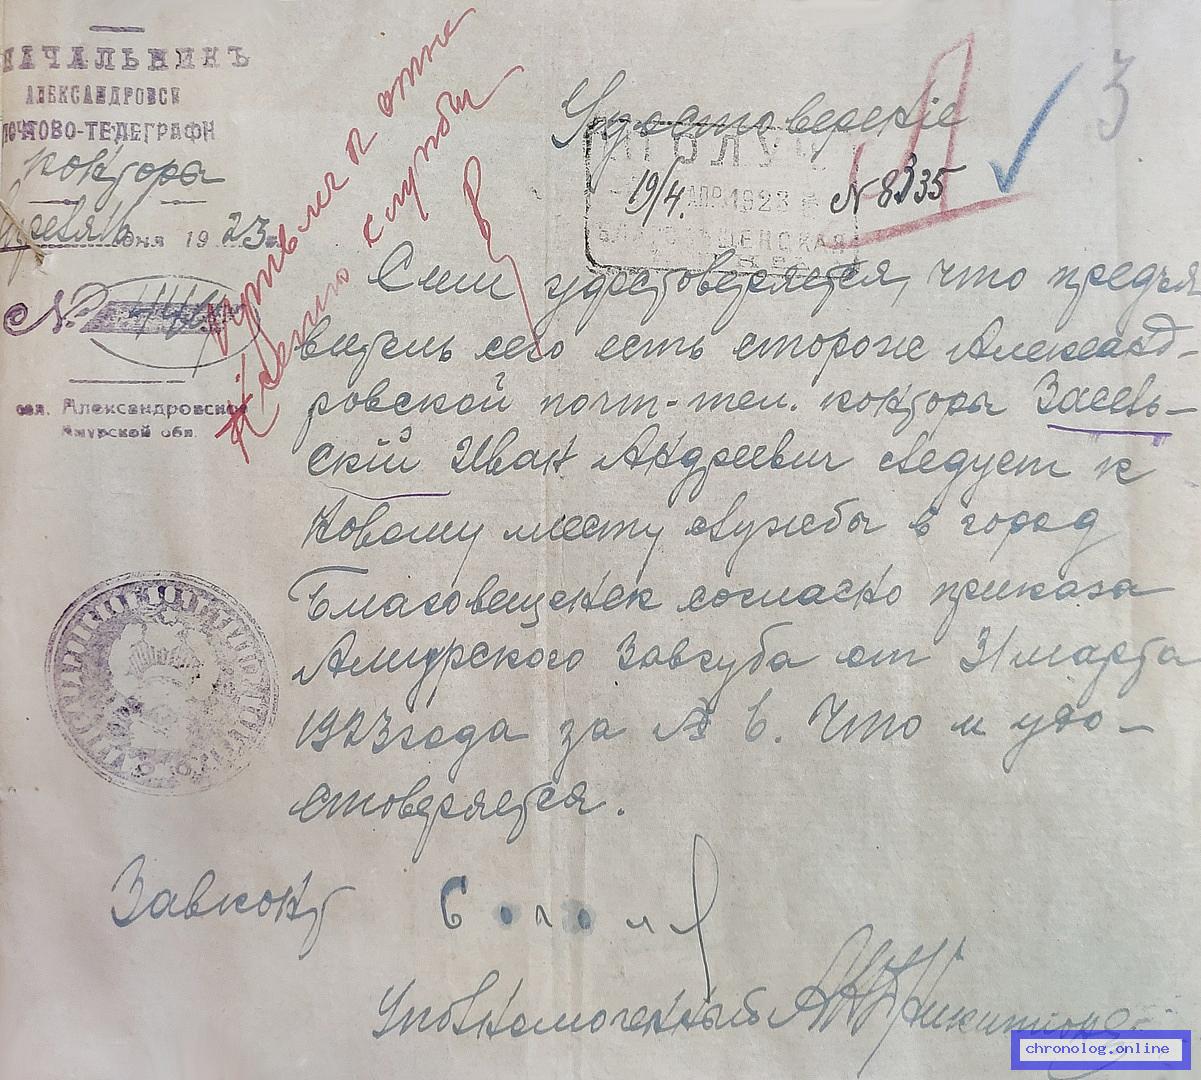 НАЧАЛЬНИКЪ
АЛЕКСАНДРОВСК
ПОЧТОВО-ТЕЛЕГРАФН
конторы
дня 1923 г.
№
сел. Александровское
Амурской обл.
службы
3
Удостоверение
ПОЛУЧ
19/4. АПР. 1923 № 8335
БЛАГОВЕЩЕНСКАЯ
Сим удостоверяется, что предъя
витель сего есть сторож Александ-
ровской почт-тел. конторы Засель-
скій Иван Андреевич следует к
новому месту службы в город
Благовещенск согласно приказа
Амурского Завгуба от 31 марта
1923 года за № 6. Что и удо-
стоверяется.
Завконт
Уполномоченный Никитюк
chronolog.online